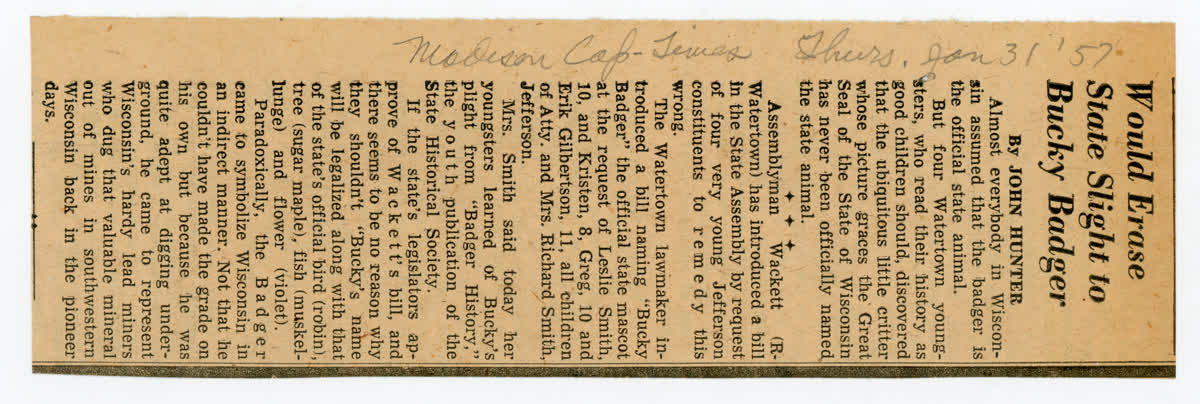 Madison Cap-Times Thurs. Jan 31 '57
Would Erase
State Slight to
Bucky Badger
By JOHN HUNTER
Almost everybody in Wiscon-
sin assumed that the badger is
the official state animal.
But four Watertown young-
sters, who read their history as
good children should, discovered
that the ubiquitous little critter
whose picture graces the Great
Seal of the State of Wisconsin
has never been officially named
the state animal.
✦ ✦ ✦
Assemblyman Wackett (R-
Watertown) has introduced a bill
in the State Assembly by request
of four very young Jefferson
constituents to remedy this
wrong.
The Watertown lawmaker in-
troduced a bill naming "Bucky
Badger" the official state mascot
at the request of Leslie Smith,
10, and Kristen, 8, Greg, 10 and
Erik Gilbertson, 11, all children
of Atty. and Mrs. Richard Smith,
Jefferson.
Mrs. Smith said today her
youngsters learned of Bucky's
plight from "Badger History,"
the youth publication of the
State Historical Society.
If the state's legislators ap-
prove of Wackett's bill, and
there seems to be no reason why
they shouldn't "Bucky's name
will be legalized along with that
of the state's official bird (robin),
tree (sugar maple), fish (muskel-
lunge) and flower (violet).
Paradoxically, the Badger
came to symbolize Wisconsin in
an indirect manner. Not that he
couldn't have made the grade on
his own but because he was
quite adept at digging under-
ground, he came to represent
Wisconsin's hardy lead miners
who dug that valuable mineral
out of mines in southwestern
Wisconsin back in the pioneer
days.